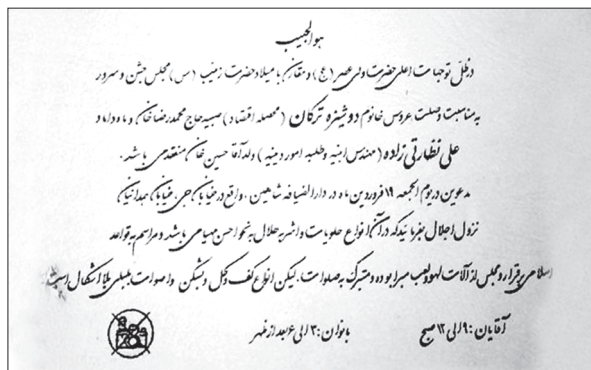 هوالحبیب
در ظل توجهات اعلی حضرت ولی عصر (عج) و مقارن با میلاد حضرت زینب (س) مجلس جشن و سرور
به مناسبت وصلت عروس خانوم دوشیزه ترکان (محصله اقتصاد) صبیه حاج محمدرضا خان و ماه داماد
علی نظارتی زاده (مهندس ابنیه و طلبه امور دینیه) ولد آقا حسین خان منعقد می باشد.
مدعوین در یوم الجمعه ۱۹ فروردین ماه در دارالضیافه شاهین، واقع در خیابان جی، خیابان همدانیان
نزول اجلال بفرمائید که در آن انواع حلویات و اشربه حلال به نحو احسن مهیا می باشد و مراسم به قواعد
اسلامی برقرار و مجلس از آلات لهو و لعب مبرا بوده و متبرک به صلوات، لیکن انواع کف و کل و بشکن و اصوات بلبلی بلا اشکال است
آقایان: ۹ الی ۱۲ صبح
بانوان: ۳ الی ۶ بعد از ظهر